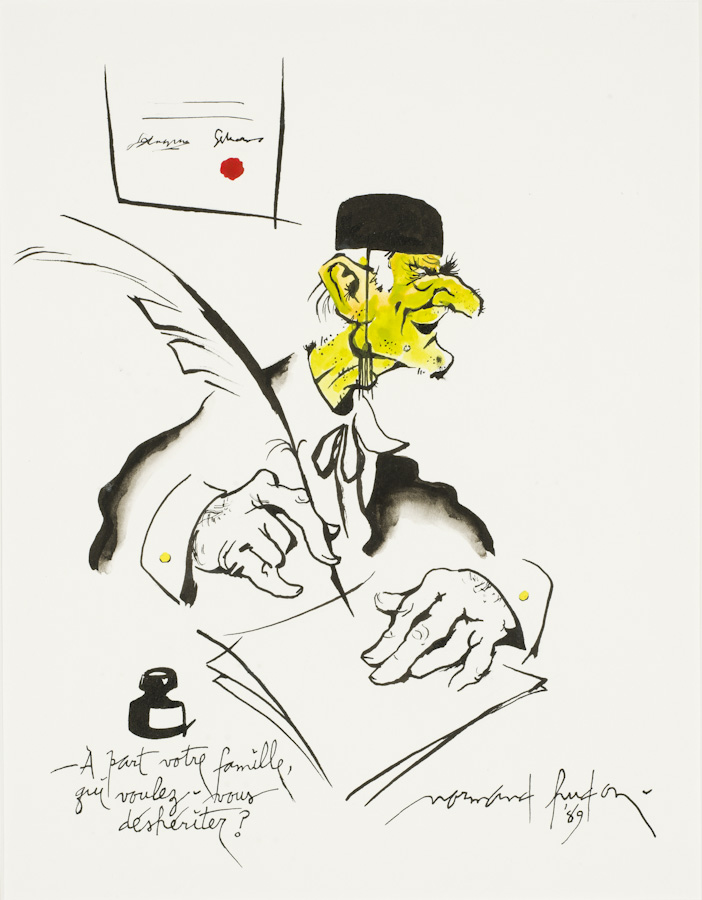 — À part votre famille,
qui voulez-vous
déshériter ?
normand hudon
'89